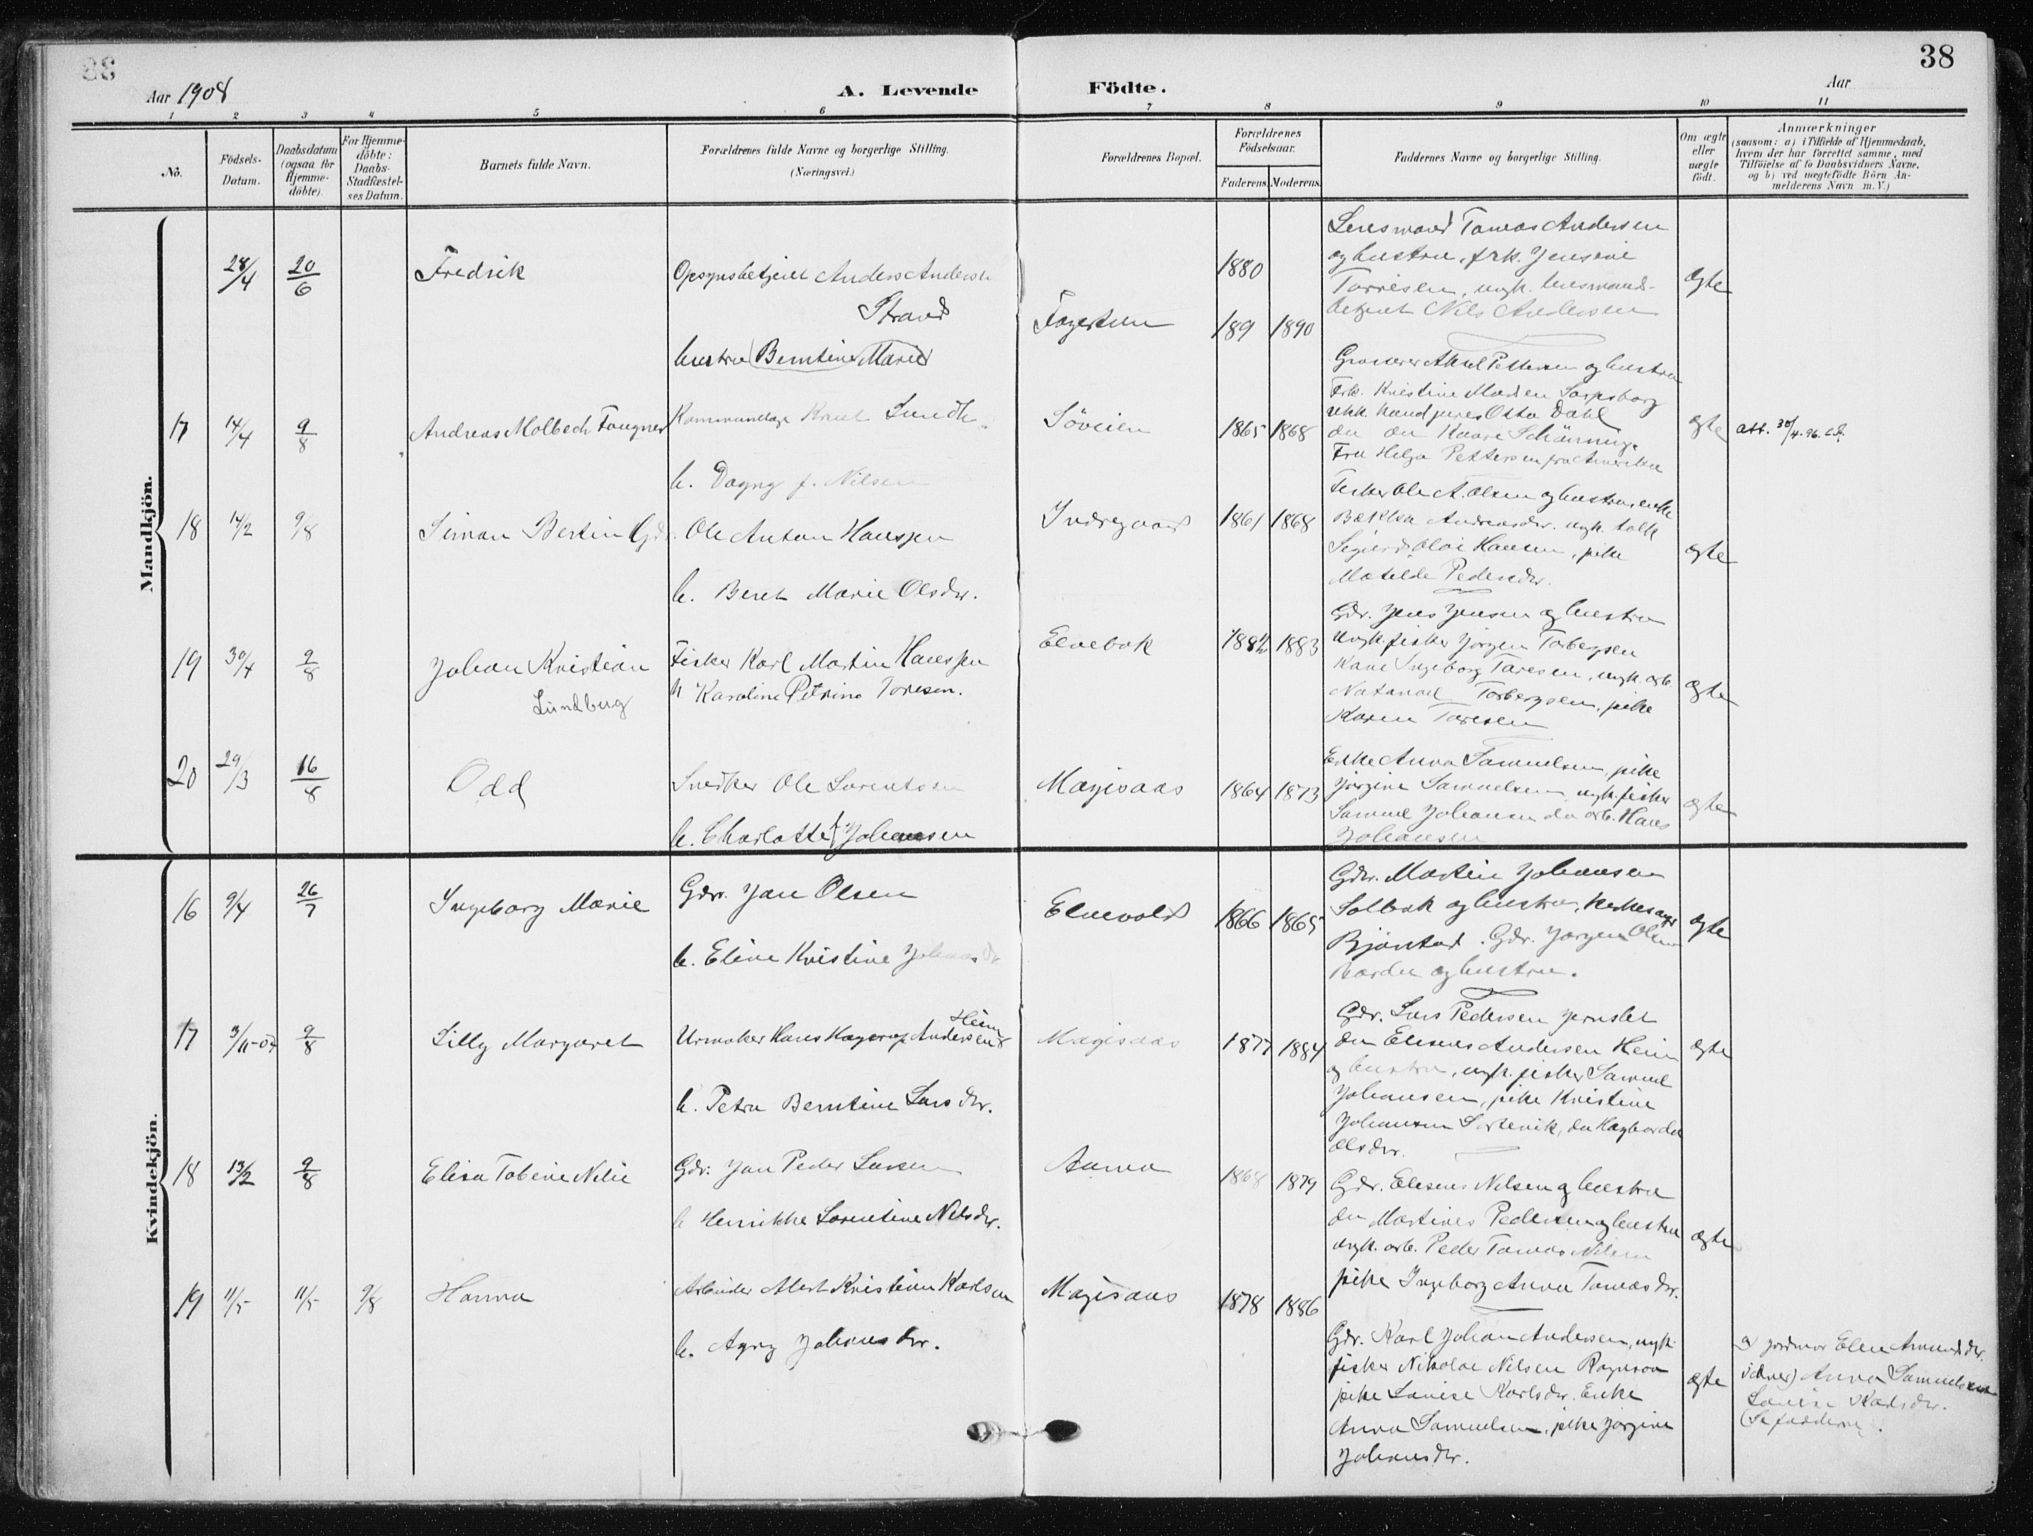 38
Aar 1908
A. Levende Födte.
Aar
1 2 3 4 5 6 7 8 9 10 11
No.
Födsels-Datum.
Daabsdatum (ogsaa för Hjemme-döbte).
For Hjemme-döbte: Daabs-Stadfæstel-ses Datum.
Barnets fulde Navn.
Forældrenes fulde Navne og borgerlige Stilling.
(Næringsvei.)
Forældrenes Bopæl.
Forældrenes Födselsaar.
Faderens. Moderens.
Faddernes Navne og borgerlige Stilling.
Om ægte eller uægte födt.
Anmærkninger
(saasom: a) i Tilfælde af Hjemmedaab,
hvem der har forrettet samme, med
Tilföielse af to Daabsvidners Navne,
og b) ved uægtefödte Börn An-
melderens Navn m. V.)
Mandkjön.
28/4 20/6 Fredrik Opsynsbetjent Anders Andersen
Strand
hustru Berntine Marie
1880
189 1890
Lensmand Tomas Andersen
og hustru, frk. Jensine
Torresen, ungk. lensmands-
betjent Nils Andersen
ægte
17 14/4 9/8 Andreas Molbech Faugner
h. Dagny f. Nilsen
Söveien 1865 1868
Grosserer Aksel Pettersen og hustru
Frk. Kristine Madsen Sarpsborg
Otto Dahl
do do Kaare
Fru Helga Pettersen fra Amerika
ægte
att. 30/4.96.
18 14/2 9/8 Simon Bertin
Ole Anton Hanssen
h. Beret Marie Olsdr.
Indregaard 1861 1868
Fisker Ole A. Olsen og hustru, enke
Andreasdr. ungk. tolk
Sigurd Olai Hansen, pike
Matilde Pedersdr.
ægte
19 30/4 9/8 Johan Kristian
Lundberg
Fisker Karl Martin Hanssen
h Karoline Petrine Toresen.
Elvebak 1882 1883
Gdr. Jens Jensen og hustru
Ungk. fisker Jörgen Torbergsen
Kone Ingeborg Toresen, ungk. arb.
Natanael Torbergsen, pike
Karen Toresen
ægte
20 29/3 16/8 Odd
Snedker Ole Lorentsen
h. Charlotte f. Johansen
Magisaas 1864 1873
Enke Anna Samuelsen, pike
Jörgine Samuelsen, ungk. fisker
Samuel Johansen do arb. Hans
Johansen
ægte
Kvindekjön.
16 9/4 26/7 Ingeborg Marie
Gdr. Jan Olsen
h. Eline Kristine
Elvevold 1866 1865
Gdr. Martin Johansen
Solbak og hustru,
Bjönstad. Gdr. Jörgen Olsen
og hustru.
ægte
17 3/11-07 9/8 Lilly Margaret
Heim
Urmaker Hans Hagerup Andersen
h. Petra Berntine Larsdr.
Magisaas 1877 1884
Gdr. Lars Pedersen
do Elisæus Andersen Heim
og hustru, ungk. fisker Samuel
Johansen, pike Kristine
Johansen Sortevik, do
Olsdr.
ægte
18 13/2 9/8 Elisa Tobine Nilie
Gdr. Jan Peder Larsen
h Henrikke Lorentine Nilsdr.
1868 1879
Gdr. Elisæus Nilsen og hustru
do Martines Pedersen og hustru
ungk. arb. Peder Tomas Nilsen
pike Ingeborg Anna Tomasdr.
ægte
19 11/5 11/5 9/8 Hanna
Arbeider Albert Kristian Karlsen
h. Agny Johansdr.
Magisaas 1878 1886
Gdr. Karl Johan Andersen, ungk.
fisker Nikolai Nilsen
pike Lovise Karlsdr. Enke
Anna Samuelsen, pike Jörgine
Johansdr.
ægte
av jordmor Elen Amundsdr.
Anna Samuelsen
Lovise Karlsdr.
(Se fadderne).